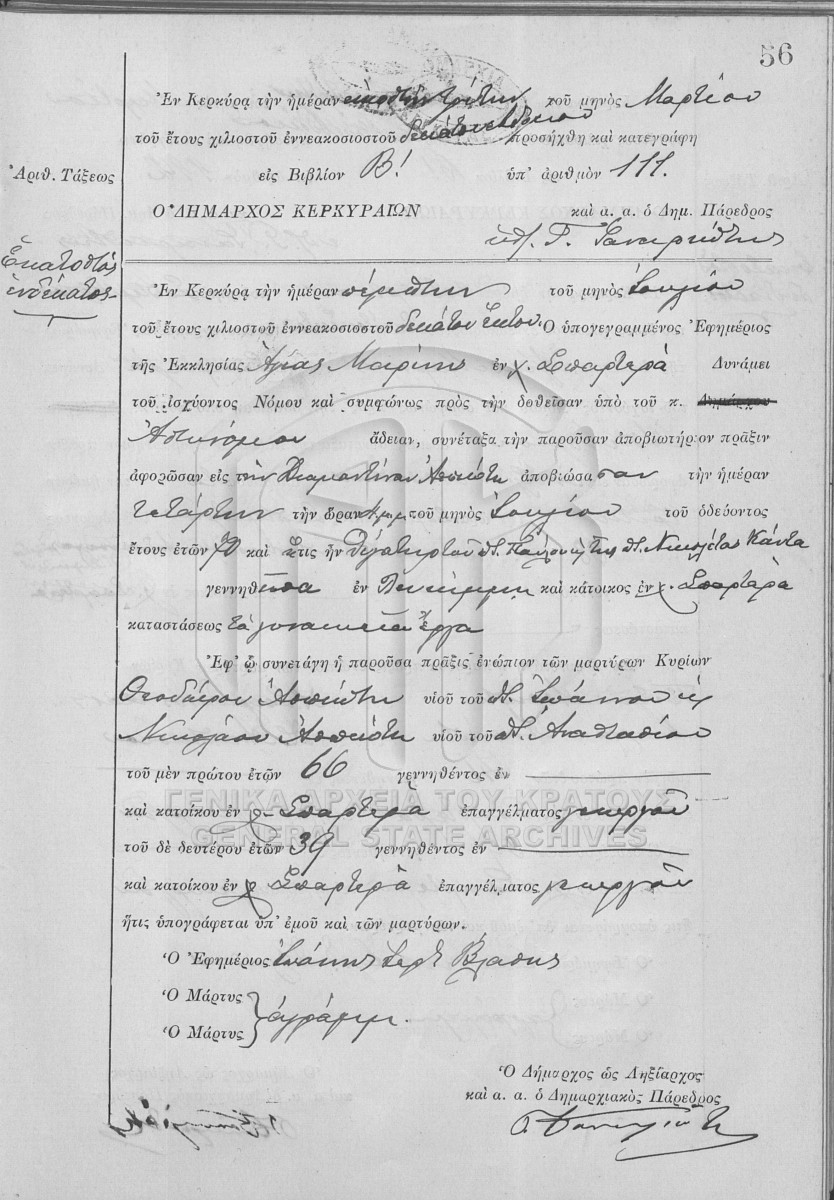 56
Ἐν Κερκύρᾳ τὴν ἡμέραν εἰκοστὴν τρίτην τοῦ μηνὸς Μαρτίου
τοῦ ἔτους χιλιοστοῦ ἐννεακοσιοστοῦ δεκάτου προσήχθη καὶ κατεγράφη
Ἀριθ. Τάξεως
εἰς Βιβλίον Β! ὑπ' ἀριθμὸν 111.
Ο ΔΗΜΑΡΧΟΣ ΚΕΡΚΥΡΑΙΩΝ καὶ α. α. ὁ Δημ. Πάρεδρος
Ἑκατοστὸς
ἑνδέκατος
Ἐν Κερκύρᾳ τὴν ἡμέραν πέμπτην τοῦ μηνὸς Ἰουλίου
τοῦ ἔτους χιλιοστοῦ ἐννεακοσιοστοῦ δεκάτου ἕκτου. Ὁ ὑπογεγραμμένος Ἐφημέριος
τῆς Ἐκκλησίας Ἁγίας Μαρίνης ἐν χ. Σπαρτερᾷ Δυνάμει
τοῦ ἰσχύοντος Νόμου καὶ συμφώνως πρὸς τὴν δοθεῖσαν ὑπὸ τοῦ κ. Δημάρχου
Ἀστυνόμου ἄδειαν, συνέταξα τὴν παροῦσαν ἀποβιωτήριον πρᾶξιν
ἀφορῶσαν εἰς τὴν Διαμαντίναν Ἀσπιώτη ἀποβιώσασαν τὴν ἡμέραν
τετάρτην τὴν ὥραν τοῦ μηνὸς Ἰουλίου τοῦ ὁδεύοντος
ἔτους ἐτῶν 70 καὶ ἥτις ἦν θυγάτηρ τοῦ πτ. Παύλου κ τῆς πτ. Νικολέτας Κάντα
γεννηθεῖσα ἐν Λευκίμμῃ καὶ κάτοικος ἐν χ. Σπαρτερᾷ
καταστάσεως τὰ γυναικεῖα ἔργα
Ἐφ' ᾧ συνετάγη ἡ παροῦσα πρᾶξις ἐνώπιον τῶν μαρτύρων Κυρίων
Θεοδώρου Ἀσπιώτη υἱοῦ τοῦ πτ. Ἰωάννου κ
Νικολάου Ἀσπιώτη υἱοῦ τοῦ πτ. Ἀναστασίου
τοῦ μὲν πρώτου ἐτῶν 66 γεννηθέντος ἐν
καὶ κατοίκου ἐν χ. Σπαρτερᾷ ἐπαγγέλματος γεωργοῦ
ΓΕΝΙΚΑ ΑΡΧΕΙΑ ΤΟΥ ΚΡΑΤΟΥΣ
GENERAL STATE ARCHIVES
τοῦ δὲ δευτέρου ἐτῶν 39 γεννηθέντος ἐν
καὶ κατοίκου ἐν χ Σπαρτερᾷ ἐπαγγέλματος γεωργοῦ
ἥτις ὑπογράφεται ὑπ' ἐμοῦ καὶ τῶν μαρτύρων.
Ὁ Ἐφημέριος Ἰωάννης Ἱερεὺς Βλάσης
Ὁ Μάρτυς
ἀγράμμ.
Ὁ Μάρτυς
Ὁ Δήμαρχος ὡς Ληξίαρχος
καὶ α. α. ὁ Δημαρχιακὸς Πάρεδρος